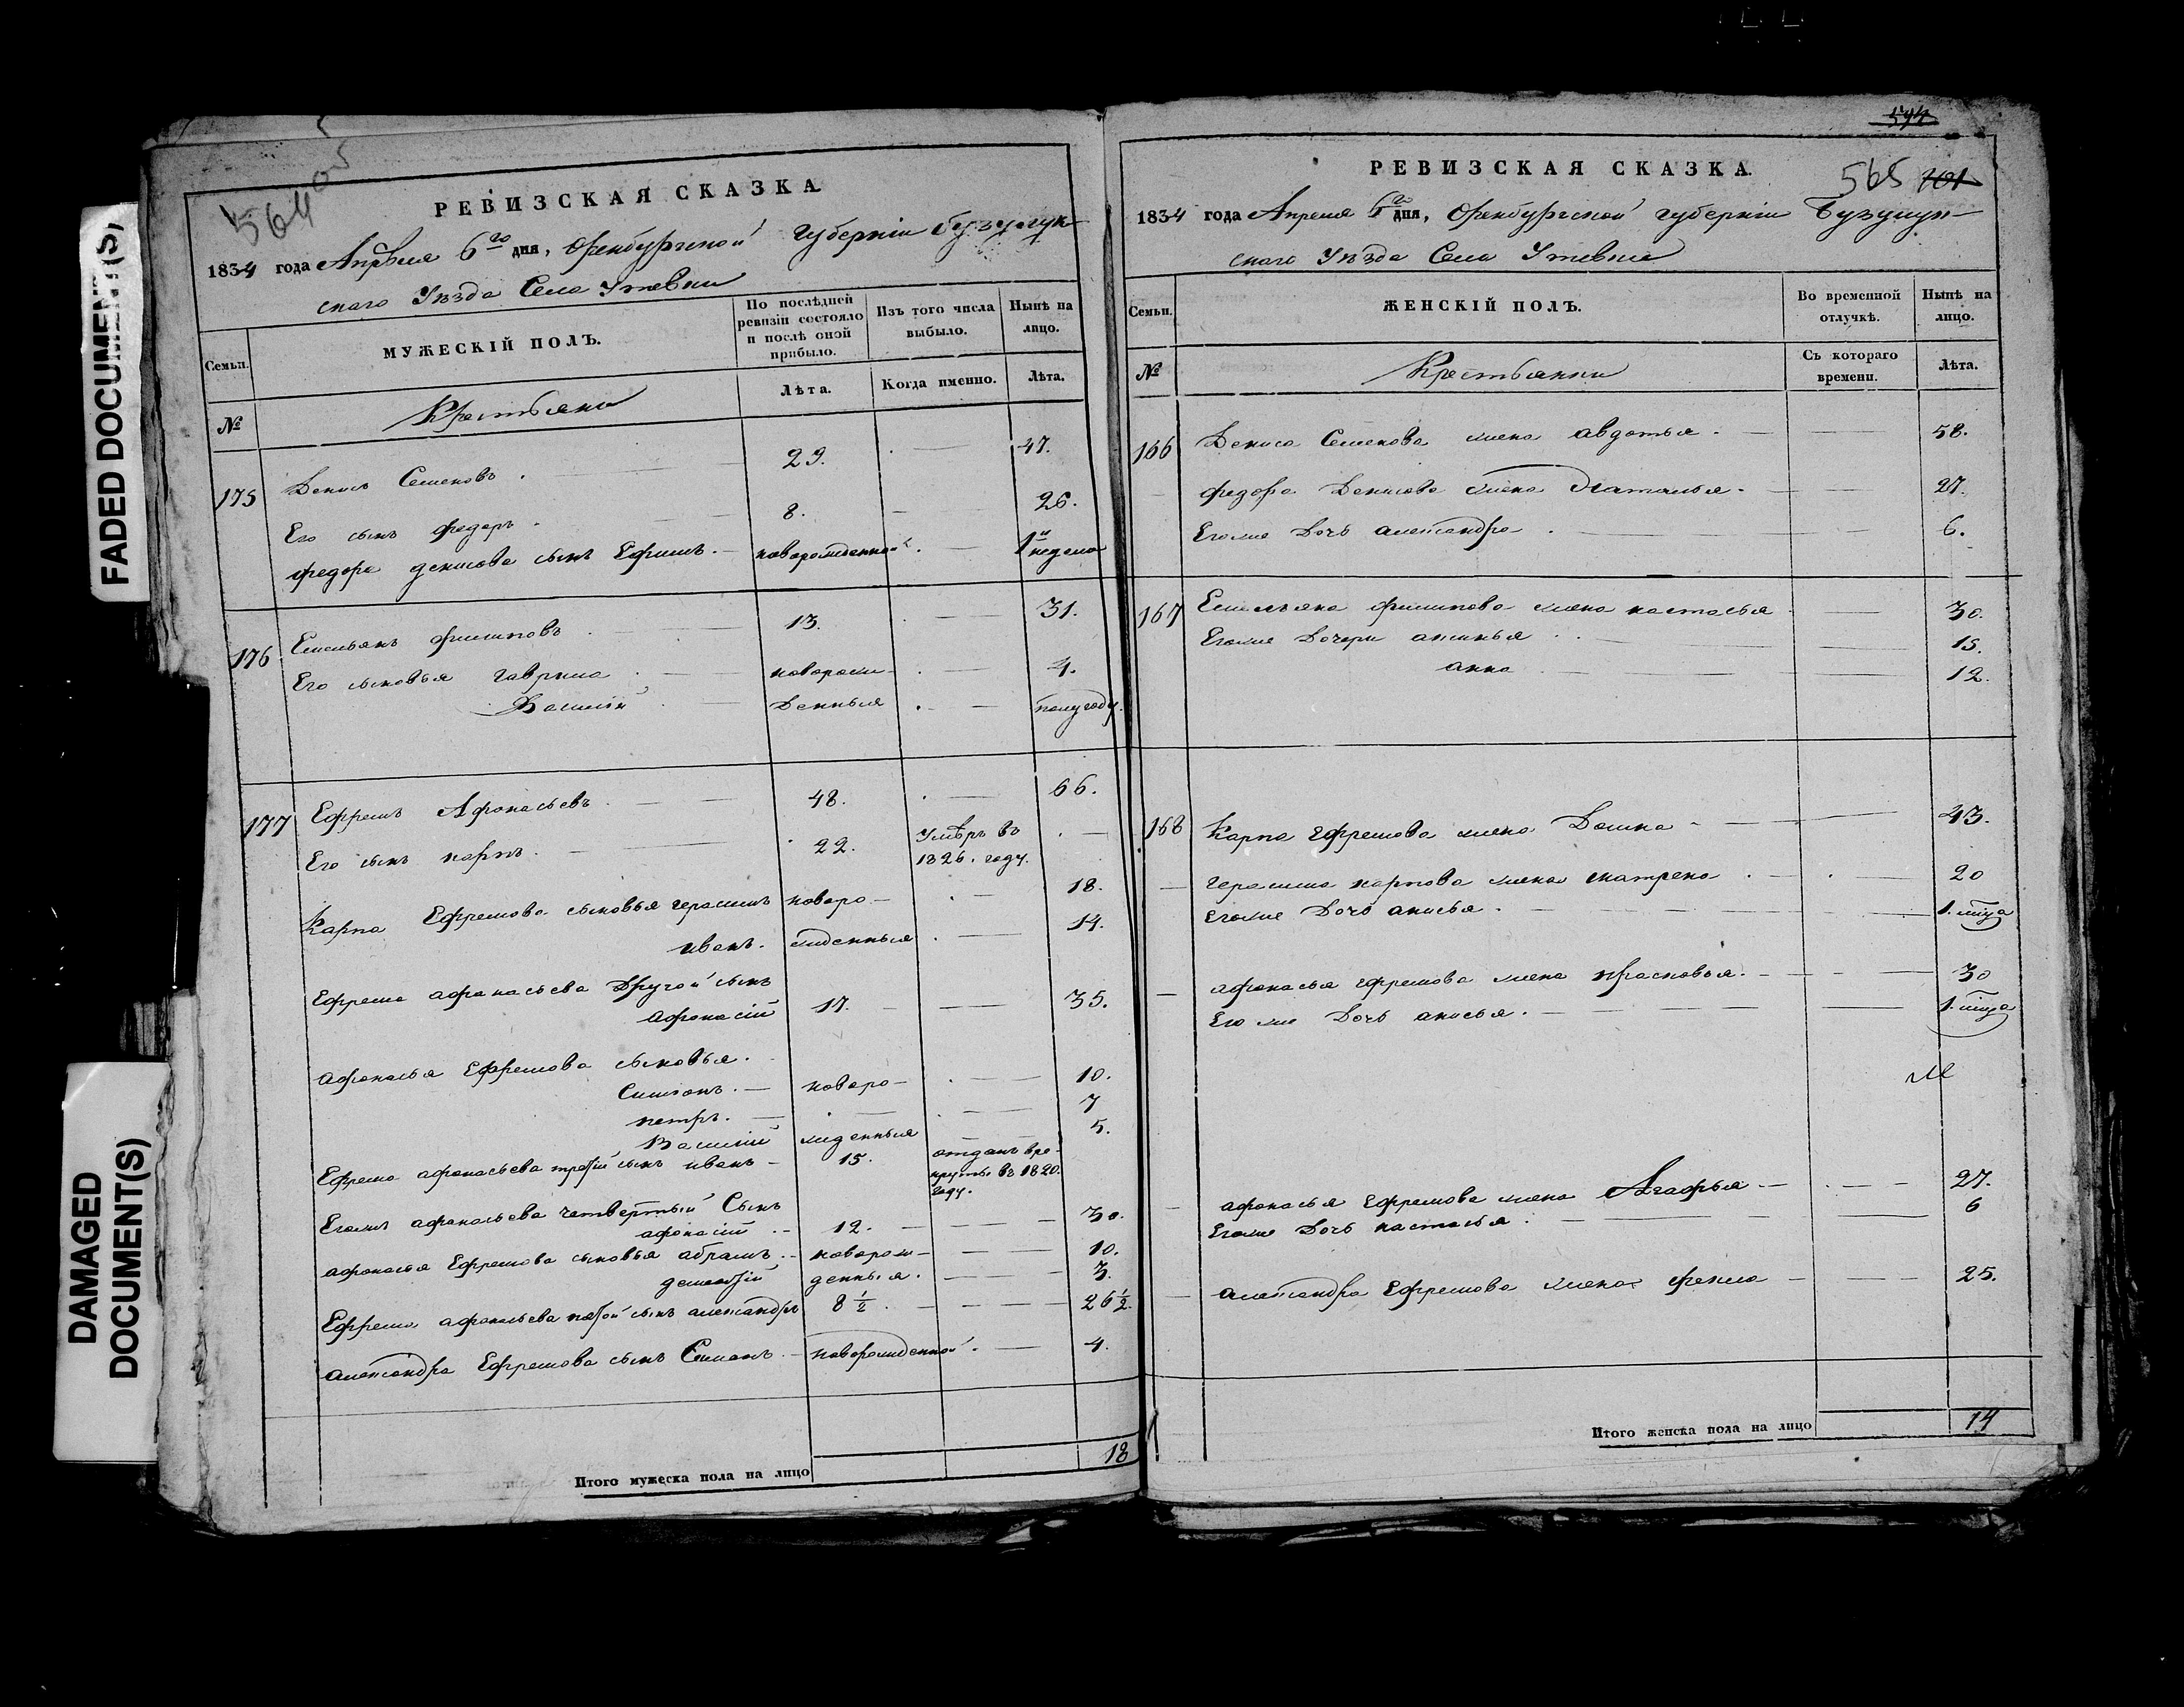 FADED DOCUMENT(S)
DAMAGED
DOCUMENT(S)
564
РЕВИЗСКАЯ СКАЗКА.
1834 года Апреля 6го дня, Оренбургской губернiи Бузулук-
скаго Уѣзда Села Утевки
Семьи.
МУЖЕСКIЙ ПОЛЪ.
По послѣдней
ревизiи состояло
и послѣ оной
прибыло.
Изъ того числа
выбыло.
Нынѣ на
лицо.
№
Крестьяне
Лѣта.
Когда именно.
Лѣта.
175 Денисъ Семеновъ. 29. 47.
Его сынъ федоръ. 8. 26.
федора денисова сынъ Ефимъ. новорожденной. 1 неделя
176 Емельянъ филиповъ 13. 31.
Его сыновья гаврила новорож- 4.
Василiй денныя полугоду.
177 Ефремъ Афонасьевъ 48. 66.
Его сынъ карпъ. 22. Умѣръ въ
1826. году.
Карпа Ефремова сыновья герасимъ новоро- 18.
иванъ. жденныя 14.
Ефрема афанасьева Другой сынъ
Афонасiй 17. 35.
афонасья Ефремова сыновья.
Симіонъ. новоро- 10.
петръ. 7
Василiй жденныя 5.
Ефрема афонасьева третiй сынъ иванъ 15. отданъ вре-
круты въ 1820.
году.
Егожъ афонасьева четвертый Сынъ
афонасiй 12. 30.
афонасья Ефремова сыновья абрамъ новорож- 10.
денныя. 3.
Ефрема афонасьева пятой сынъ александръ 8 1/2. 26 1/2.
александра Ефремова сынъ Симонъ новорожденной. 4.
Итого мужеска пола на лицо 18
594
РЕВИЗСКАЯ СКАЗКА.
565 701
1834 года Апреля 6го дня, Оренбургской губернiи Бузулук-
скаго Уѣзда Села Утевки
Семьи.
ЖЕНСКIЙ ПОЛЪ.
Во временной
отлучкѣ.
Нынѣ на
лицо.
№
Крестьянки
Съ котораго
времени.
Лѣта.
166 Дениса Семенова жена авдотья. 58.
федора Денисова жена Наталья. 27.
Егоже Дочь александра. 6.
167 Емельяна филипова жена настасья 30.
Егоже Дочери аксинья 15.
анна 12.
168 Карпа ефремова жена Домна 43.
герасима карпова жена матрена 20
Егоже Дочь анисья. 1. мца
афонасья ефремова жена прасковья. 30
Его же Дочь анисья. 1. мца
афонасья Ефремова жена Агафья 27.
Егоже Дочь настасья. 6
александра Ефремова жена фекла 25.
Итого женска пола на лицо 14